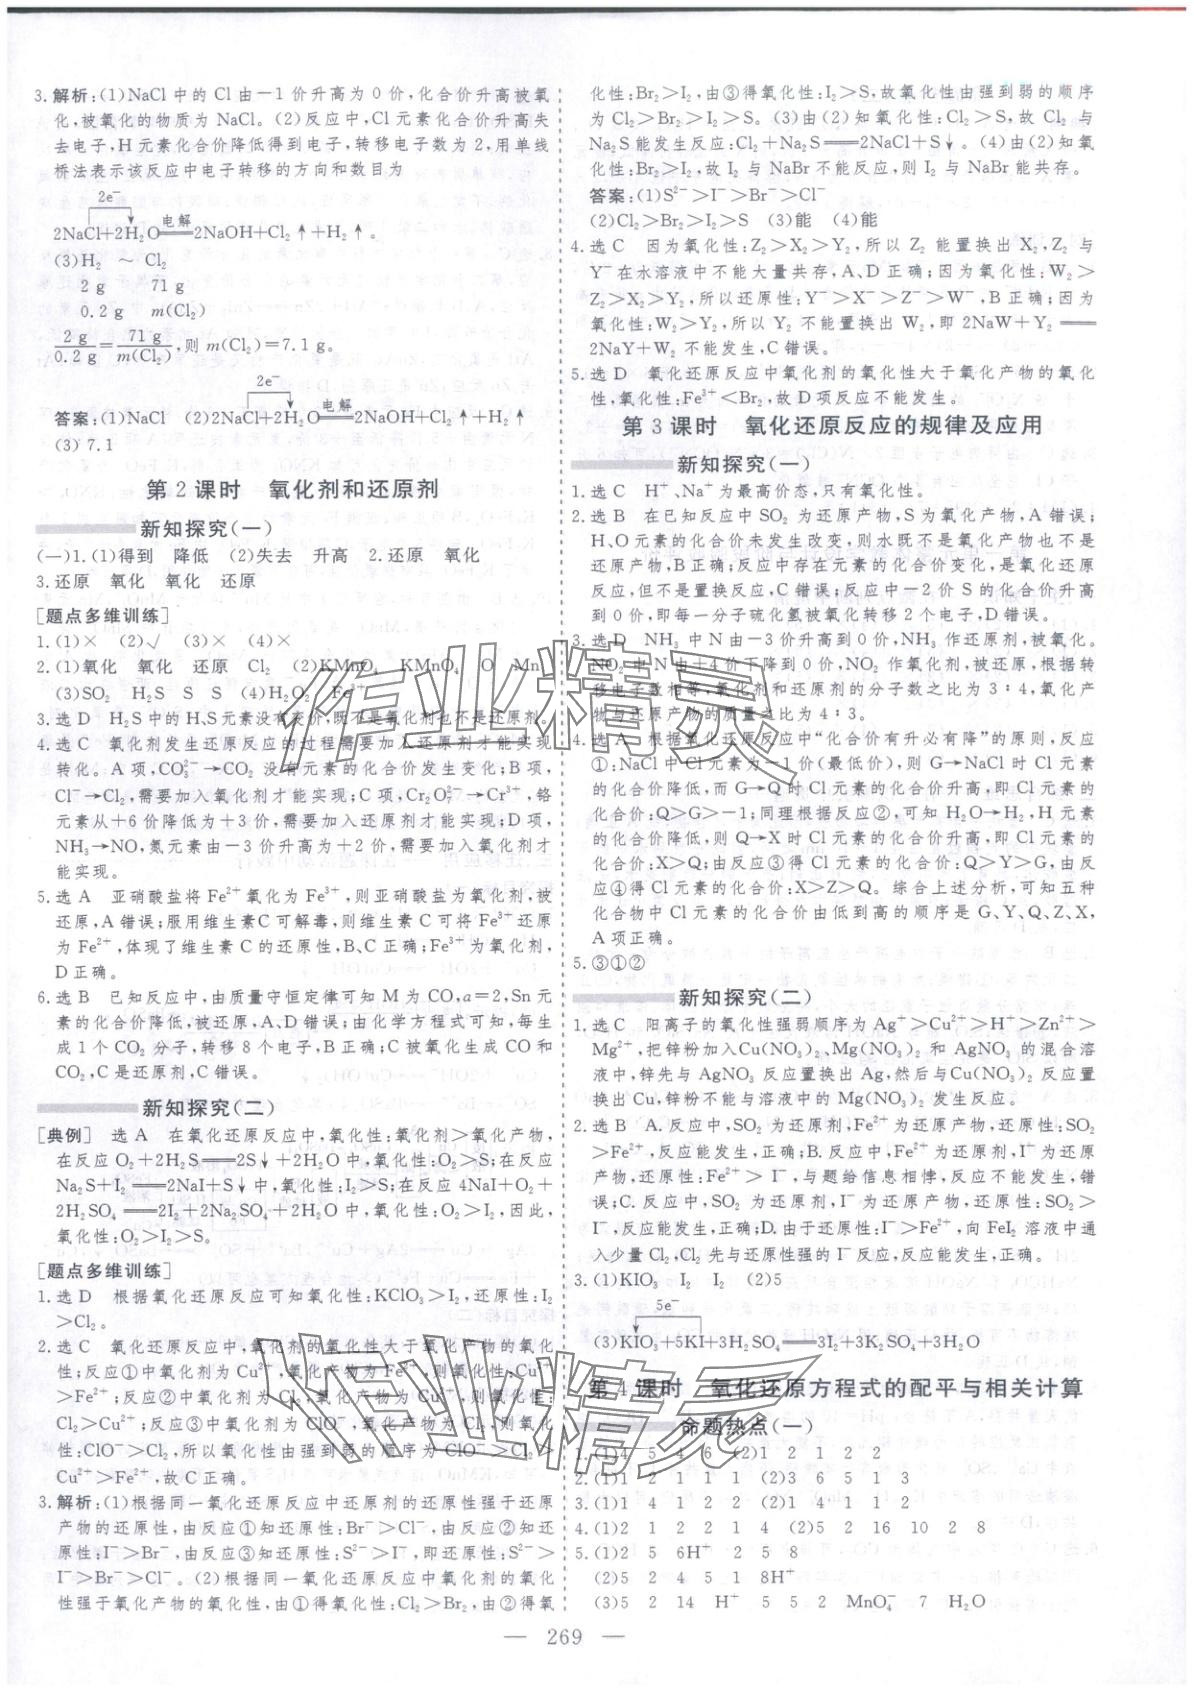 3.解析:(1)NaCl中的Cl由－1价升高为0价,化合价升高被氧
化,被氧化的物质为NaCl。(2)反应中,Cl元素化合价升高失
去电子,H元素化合价降低得到电子,转移电子数为2,用单线
桥法表示该反应中电子转移的方向和数目为
2e⁻
2NaCl+2H₂O═电解═2NaOH+Cl₂↑+H₂↑。
(3)H₂　～　Cl₂
2 g　　71 g
0.2 g　m(Cl₂)
2 g/0.2 g=71 g/m(Cl₂),则m(Cl₂)=7.1 g。
2e⁻
答案:(1)NaCl　(2)2NaCl+2H₂O═电解═2NaOH+Cl₂↑+H₂↑
(3)7.1
第2课时　氧化剂和还原剂
新知探究(一)
(一)1.(1)得到　降低　(2)失去　升高　2.还原　氧化
3.还原　氧化　氧化　还原
[题点多维训练]
1.(1)×　(2)√　(3)×　(4)×
2.(1)氧化　氧化　还原　Cl₂　(2)KMnO₄　KMnO₄　O　Mn
(3)SO₂　H₂S　S　S　(4)H₂O₂　Fe³⁺
3.选D　H₂S中的H、S元素没有变价,既不是氧化剂也不是还原剂。
4.选C　氧化剂发生还原反应的过程需要加入还原剂才能实现
转化。A项,CO₃²⁻→CO₂没有元素的化合价发生变化;B项,
Cl⁻→Cl₂,需要加入氧化剂才能实现;C项,Cr₂O₇²⁻→Cr³⁺,铬
元素从+6价降低为+3价,需要加入还原剂才能实现;D项,
NH₃→NO,氮元素由－3价升高为+2价,需要加入氧化剂才
能实现。
5.选A　亚硝酸盐将Fe²⁺氧化为Fe³⁺,则亚硝酸盐为氧化剂,被
还原,A错误;服用维生素C可解毒,则维生素C可将Fe³⁺还原
为Fe²⁺,体现了维生素C的还原性,B、C正确;Fe³⁺为氧化剂,
D正确。
6.选B　已知反应中,由质量守恒定律可知M为CO,a=2,Sn元
素的化合价降低,被还原,A、D错误;由化学方程式可知,每生
成1个CO₂分子,转移8个电子,B正确;C被氧化生成CO和
CO₂,C是还原剂,C错误。
新知探究(二)
[典例]　选A　在氧化还原反应中,氧化性:氧化剂＞氧化产物,
在反应O₂+2H₂S═2S↓+2H₂O中,氧化性:O₂＞S;在反应
Na₂S+I₂═2NaI+S↓中,氧化性:I₂＞S;在反应4NaI+O₂+
2H₂SO₄═2I₂+2Na₂SO₄+2H₂O中,氧化性:O₂＞I₂,因此,
氧化性:O₂＞I₂＞S。
[题点多维训练]
1.选D　根据氧化还原反应可知氧化性:KClO₃＞I₂,还原性:I₂
＞Cl₂。
2.选C　氧化还原反应中,氧化剂的氧化性大于氧化产物的氧化
性;反应①中氧化剂为Cu²⁺,氧化产物为Fe²⁺,则氧化性:Cu²⁺
＞Fe²⁺;反应②中氧化剂为Cl₂,氧化产物为Cu²⁺,则氧化性:
Cl₂＞Cu²⁺;反应③中氧化剂为ClO⁻,氧化产物为Cl₂,则氧化
性:ClO⁻＞Cl₂,所以氧化性由强到弱的顺序为ClO⁻＞Cl₂＞
Cu²⁺＞Fe²⁺,故C正确。
3.解析:(1)根据同一氧化还原反应中还原剂的还原性强于还原
产物的还原性,由反应①知还原性:Br⁻＞Cl⁻,由反应②知还
原性:I⁻＞Br⁻,由反应③知还原性:S²⁻＞I⁻,即还原性:S²⁻＞
I⁻＞Br⁻＞Cl⁻。(2)根据同一氧化还原反应中氧化剂的氧化
性强于氧化产物的氧化性,由①得氧化性:Cl₂＞Br₂,由②得氧
化性:Br₂＞I₂,由③得氧化性:I₂＞S,故氧化性由强到弱的顺序
为Cl₂＞Br₂＞I₂＞S。(3)由(2)知氧化性:Cl₂＞S,故Cl₂与
Na₂S能发生反应:Cl₂+Na₂S═2NaCl+S↓。(4)由(2)知氧
化性:Br₂＞I₂,故I₂与NaBr不能反应,则I₂与NaBr能共存。
答案:(1)S²⁻＞I⁻＞Br⁻＞Cl⁻
(2)Cl₂＞Br₂＞I₂＞S　(3)能　(4)能
4.选C　因为氧化性:Z₂＞X₂＞Y₂,所以Z₂能置换出X₂,Z₂与
Y⁻在水溶液中不能大量共存,A、D正确;因为氧化性:W₂＞
Z₂＞X₂＞Y₂,所以还原性:Y⁻＞X⁻＞Z⁻＞W⁻,B正确;因为
氧化性:W₂＞Y₂,所以Y₂不能置换出W₂,即2NaW+Y₂═
2NaY+W₂不能发生,C错误。
5.选D　氧化还原反应中氧化剂的氧化性大于氧化产物的氧化
性,氧化性:Fe³⁺＜Br₂,故D项反应不能发生。
第3课时　氧化还原反应的规律及应用
新知探究(一)
1.选C　H⁺、Na⁺为最高价态,只有氧化性。
2.选B　在已知反应中SO₂为还原产物,S为氧化产物,A错误;
H、O元素的化合价未发生改变,则水既不是氧化产物也不是
还原产物,B正确;反应中存在元素的化合价变化,是氧化还原
反应,但不是置换反应,C错误;反应中－2价S的化合价升高
到0价,即每一分子硫化氢被氧化转移2个电子,D错误。
3.选D　NH₃中N由－3价升高到0价,NH₃作还原剂,被氧化。
NO₂中N由+4价下降到0价,NO₂作氧化剂,被还原,根据转
移电子数相等,氧化剂和还原剂的分子数之比为3∶4,氧化产
物与还原产物的质量之比为4∶3。
4.选A　根据氧化还原反应中“化合价有升必有降”的原则,反应
①:NaCl中Cl元素为－1价(最低价),则G→NaCl时Cl元素
的化合价降低,而G→Q时Cl元素的化合价升高,即Cl元素的
化合价:Q＞G＞－1;同理根据反应②,可知H₂O→H₂,H元素
的化合价降低,则Q→X时Cl元素的化合价升高,即Cl元素的
化合价:X＞Q;由反应③得Cl元素的化合价:Q＞Y＞G,由反
应④得Cl元素的化合价:X＞Z＞Q。综合上述分析,可知五种
化合物中Cl元素的化合价由低到高的顺序是G、Y、Q、Z、X,
A项正确。
5.③①②
新知探究(二)
1.选C　阳离子的氧化性强弱顺序为Ag⁺＞Cu²⁺＞H⁺＞Zn²⁺＞
Mg²⁺,把锌粉加入Cu(NO₃)₂、Mg(NO₃)₂和AgNO₃的混合溶
液中,锌先与AgNO₃反应置换出Ag,然后与Cu(NO₃)₂反应置
换出Cu,锌粉不能与溶液中的Mg(NO₃)₂发生反应。
2.选B　A.反应中,SO₂为还原剂,Fe²⁺为还原产物,还原性:SO₂
＞Fe²⁺,反应能发生,正确;B.反应中,Fe²⁺为还原剂,I⁻为还原
产物,还原性:Fe²⁺＞I⁻,与题给信息相悖,反应不能发生,错
误;C.反应中,SO₂为还原剂,I⁻为还原产物,还原性:SO₂＞
I⁻,反应能发生,正确;D.由于还原性:I⁻＞Fe²⁺,向FeI₂溶液中通
入少量Cl₂,Cl₂先与还原性强的I⁻反应,反应能发生,正确。
3.(1)KIO₃　I₂　I₂　(2)5
5e⁻
(3)KIO₃+5KI+3H₂SO₄═3I₂+3K₂SO₄+3H₂O
第4课时　氧化还原方程式的配平与相关计算
命题热点(一)
1.(1)4　5　4　6　(2)1　2　1　2　2
2.(1)1　2　1　1　1　(2)3　6　5　1　3
3.(1)1　4　1　2　2　(2)1　4　1　1　2
4.(1)2　1　2　2　1　4　(2)5　2　16　10　2　8
5.(1)2　5　6H⁺　2　5　8
(2)5　2　4　5　1　8H⁺
(3)5　2　14　H⁺　5　5　2　MnO₄⁻　7　H₂O
— 269 —
作业精灵
作业精灵